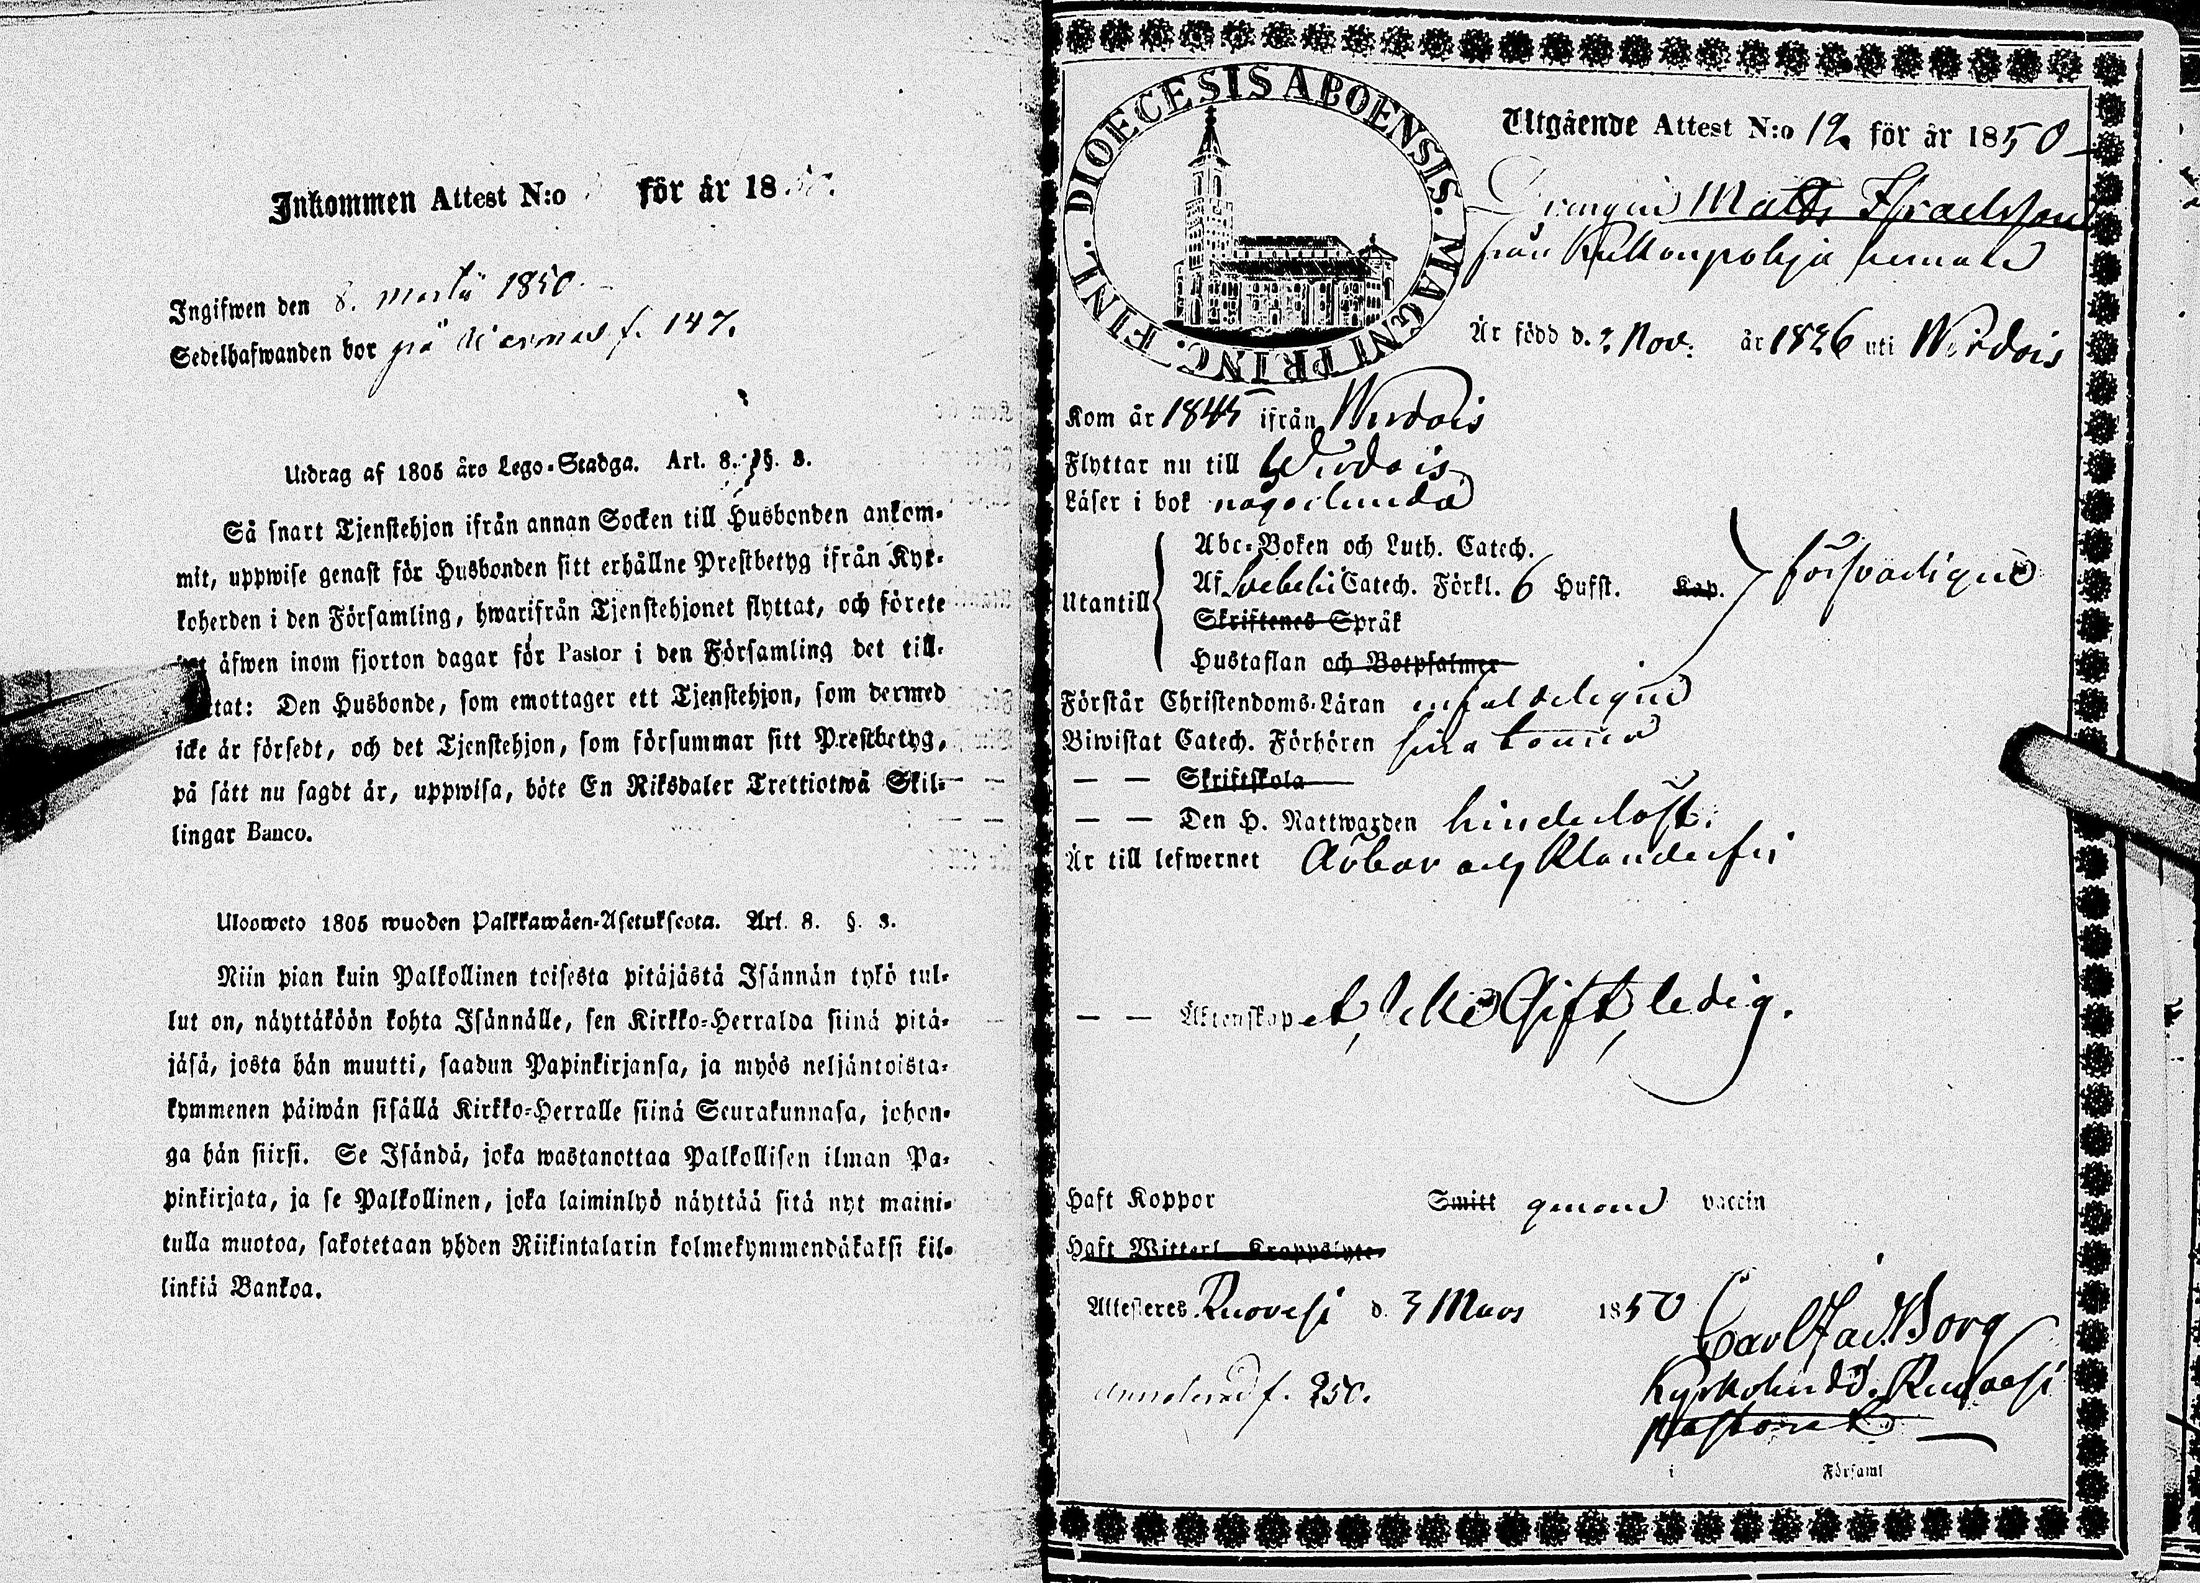 Inkommen Attest N:o för år 1850.
Ingifwen den 8. Martii 1850.
Sedelhafwanden bor på f. 147.
Utdrag af 1805 års Lego-Stadga. Art. 8. §. 3.
Så snart Tjenstehjon ifrån annan Socken till Husbonden ankom-
mit, uppwise genast för Husbonden sitt erhållne Prestbetyg ifrån Kyr-
koherden i den Församling, hwarifrån Tjenstehjonet flyttat, och förete
äfwen inom fjorton dagar för Pastor i den Församling det till.
Den Husbonde, som emottager ett Tjenstehjon, som dermed
icke är försedt, och det Tjenstehjon, som försummar sitt Prestbetyg,
på sätt nu sagdt är, uppwisa, böte En Riksdaler Trettiotwå Skil-
lingar Banco.
Ulosweto 1805 wuoden Palkkawäen-Asetuksesta. Art. 8. §. 3.
Niin pian kuin Palkollinen toisesta pitäjästä Isännän tykö tul-
lut on, näyttäköön kohta Isännälle, sen Kirkko-Herralda siinä pitä-
jäsä, josta hän muutti, saadun Papinkirjansa, ja myös neljäntoista-
kymmenen päiwän sisällä Kirkko-Herralle siinä Seurakunnasa, johon-
ga hän siirsi. Se Isändä, joka wastanottaa Palkollisen ilman Pa-
pinkirjata, ja se Palkollinen, joka laiminlyö näyttää sitä nyt maini-
tulla muotoa, sakotetaan yhden Riikintalarin kolmekymmendäkaksi kil-
linkiä Bankoa.
DIOECESIS ABOENSIS. MAGNI PRINC. FINL.
Utgående Attest N:o 19 för år 1850
Drengen Matts Israelsson
från hemman
Är född d. 2 Nov. år 1826 uti Wirdois
Kom år 1845 ifrån Wirdois
Flyttar nu till Wirdois
Läser i bok någorlunda
Abc-Boken och Luth. Catech.
Utantill Af Svebelii Catech. Förkl. 6 Hufst. Kap. försvarligen
Skriftenes Språk
Hustaflan och Botpsalmer
Förstår Christendoms-Läran enfaldeligen
Biwistat Catech. Förhören sina
— — Skriftskola
— — Den H. Nattwarden hinderlöst.
Är till lefwernet ärbar och klanderfri
— — Äktenskapet, icke Gift, ledig.
Haft Koppor Smitt genom vaccin
Haft Mitterl. Krappslyte
Attesteres Ruovesi d. 3 Mars 1850
Carl Borg
Kyrkoherde i Ruovesi
f. 250.
Pastorat
i Församl